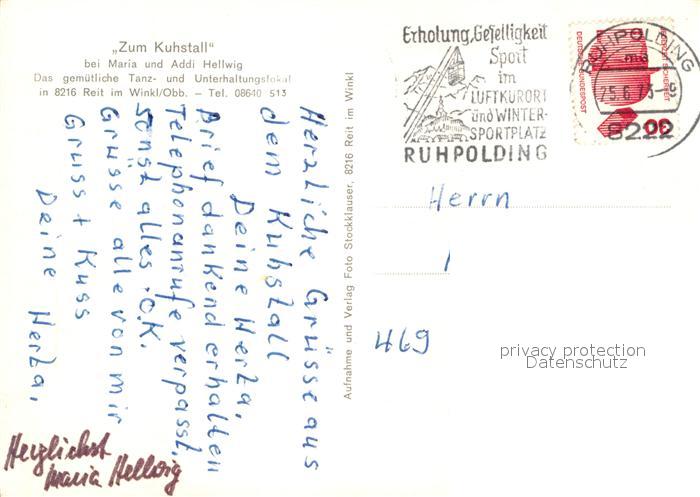 „Zum Kuhstall“
bei Maria und Addi Hellwig
Das gemütliche Tanz- und Unterhaltungslokal
in 8216 Reit im Winkl/Obb. – Tel. 08640 513
Herzliche Grüsse aus
dem Kuhstall
Deine Herta.
Brief dankend erhalten
Telephonanrufe verpasst.
Sonst alles O.K.
Grüsse alle von mir
Gruss + Kuss
Deine Herta.
Herzlichst
Maria Hellwig
Aufnahme und Verlag Foto Stockklauser, 8216 Reit im Winkl
Erholung, Geselligkeit
Sport
im
LUFTKURORT
und WINTER-
SPORTPLATZ
RUHPOLDING
RUHPOLDING
25.6.73
8222
DEUTSCHE BUNDESPOST
Herrn
469
privacy protection
Datenschutz